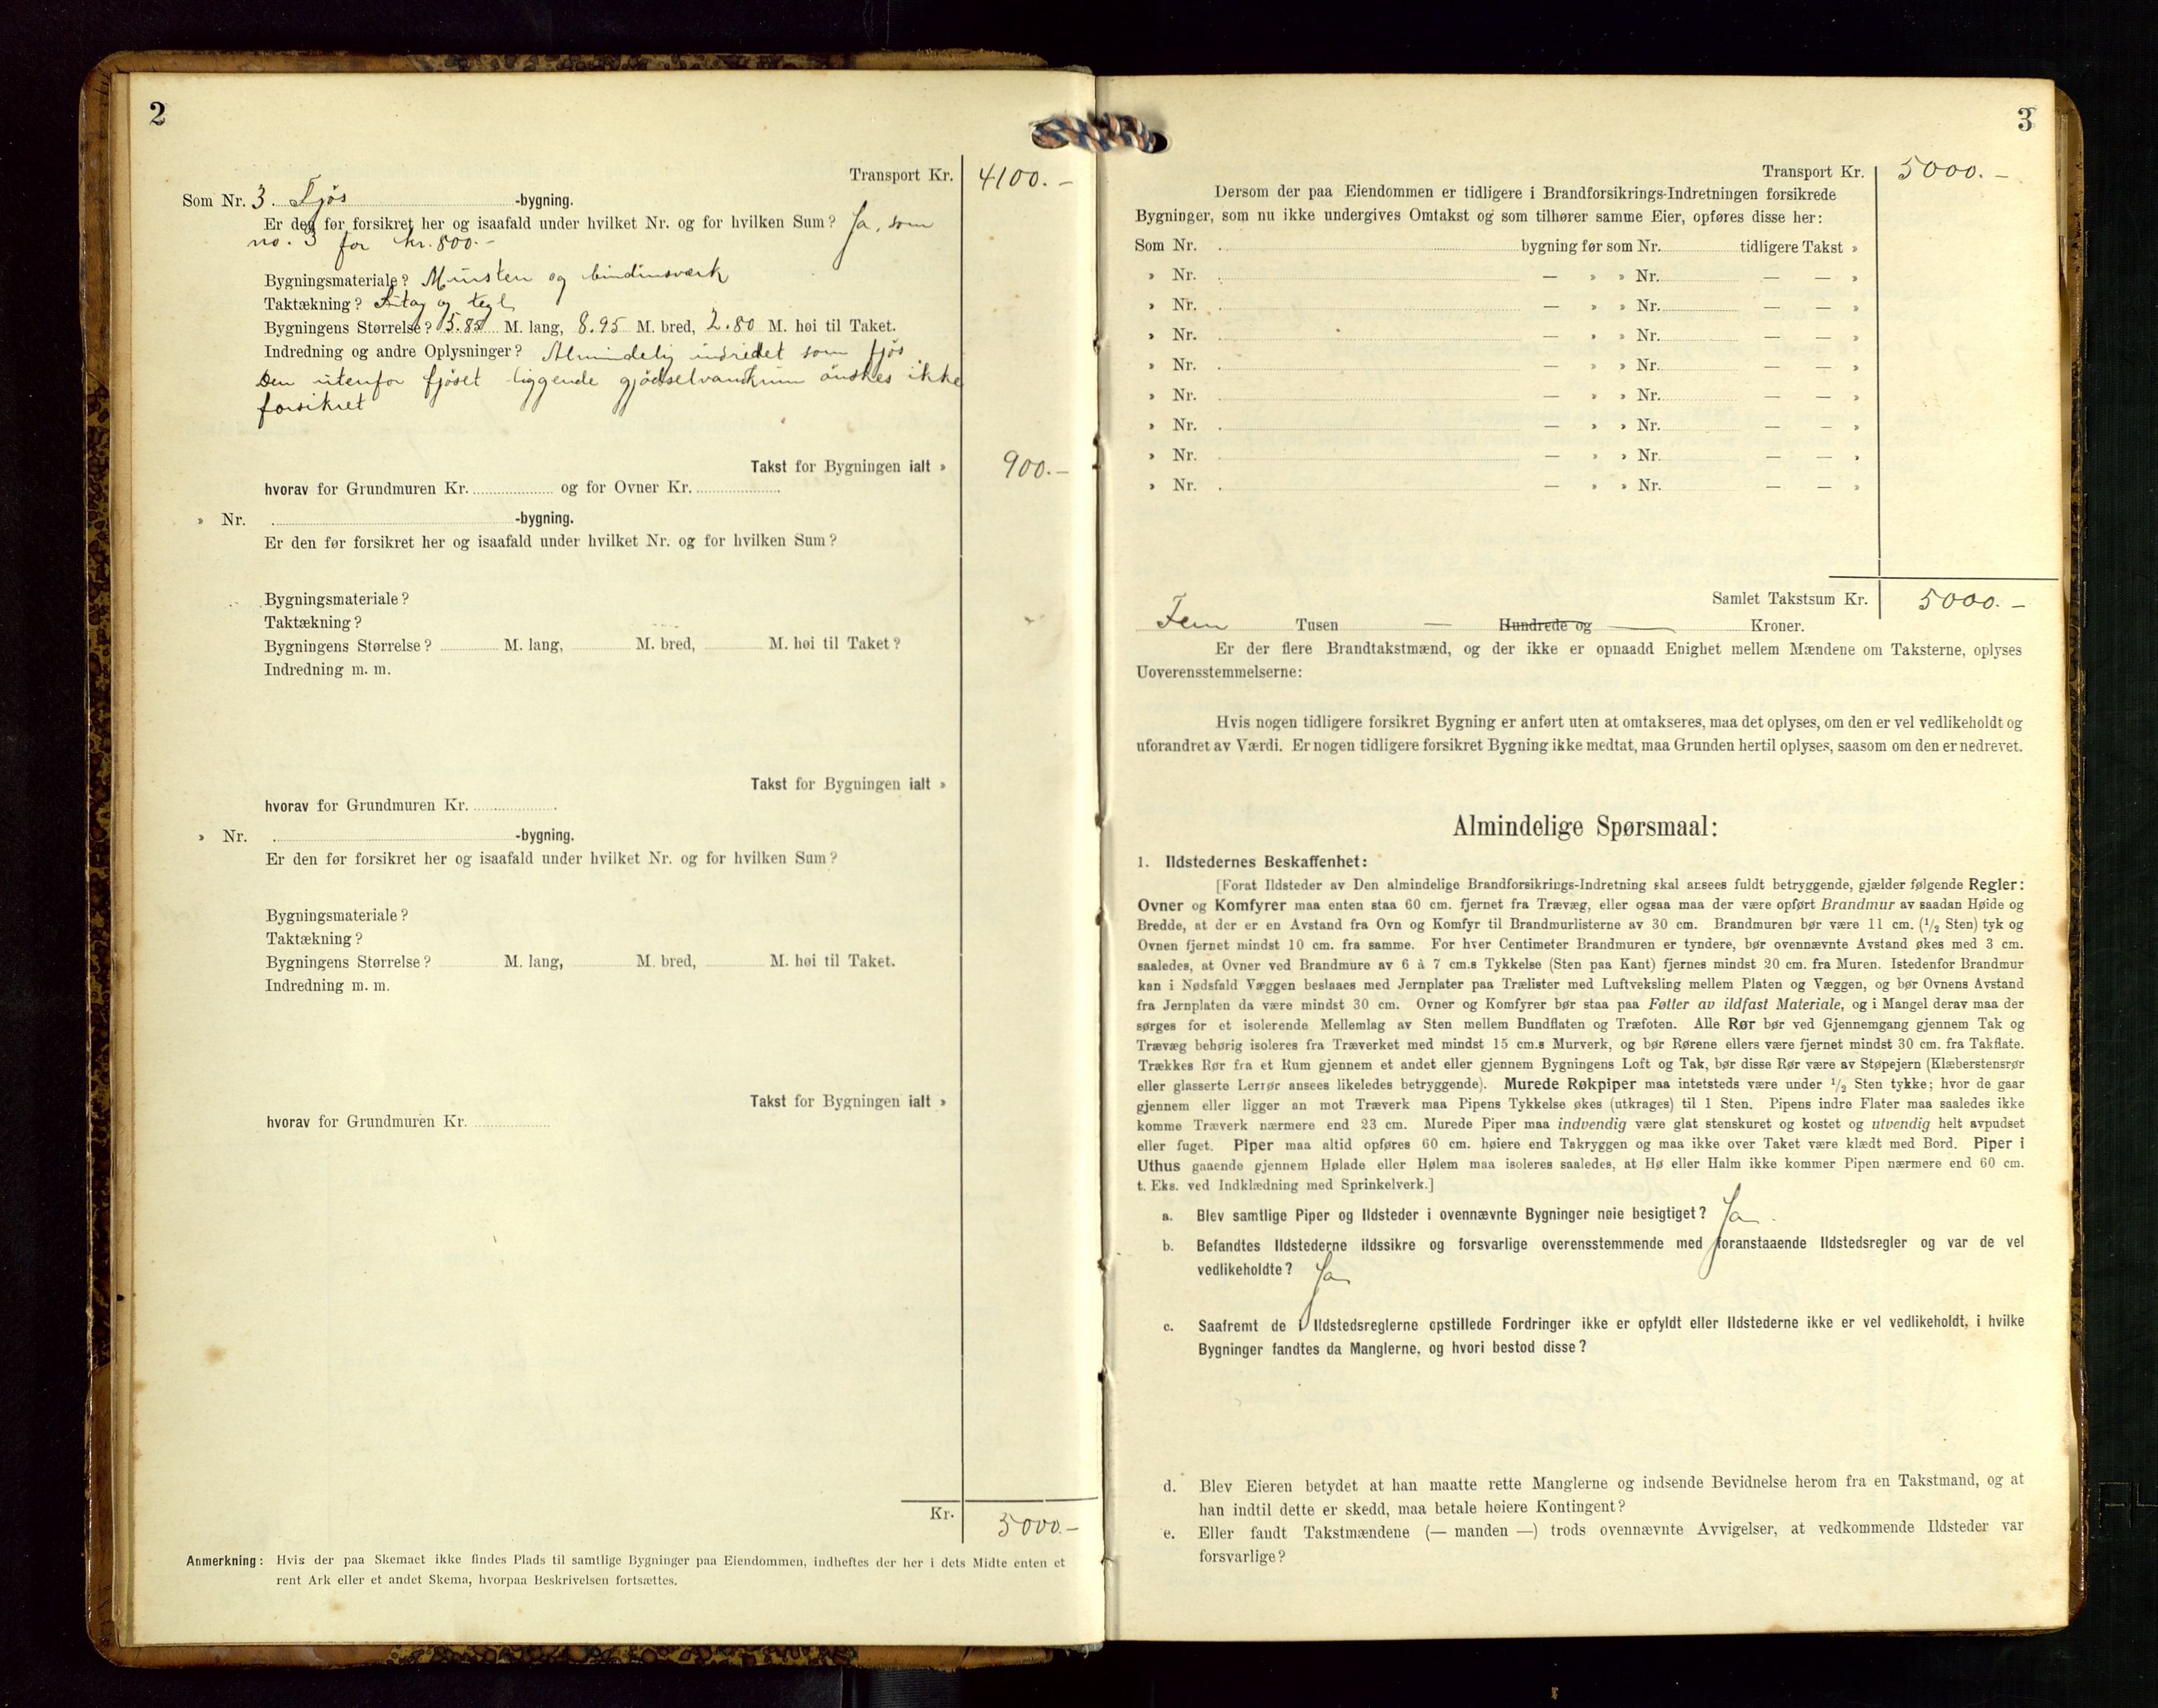 2
Transport Kr. 4100.-
Som Nr. 3. Fjøs -bygning.
Er den før forsikret her og isaafald under hvilket Nr. og for hvilken Sum? Ja, som
no. 3 for kr. 800.-
Bygningsmateriale? Mursten og bindinsværk
Taktækning? og tegl
Bygningens Størrelse? 5.85 M. lang, 8.95 M. bred, 2.80 M. høi til Taket.
Indredning og andre Oplysninger? Almindelig indredet som fjøs
Den utenfor fjøset liggende gjødselvandkum ønskes ikke
forsikret
Takst for Bygningen ialt » 900.-
hvorav for Grundmuren Kr. og for Ovner Kr.
» Nr. -bygning.
Er den før forsikret her og isaafald under hvilket Nr. og for hvilken Sum?
Bygningsmateriale?
Taktækning?
Bygningens Størrelse? M. lang, M. bred, M. høi til Taket?
Indredning m. m.
Takst for Bygningen ialt »
hvorav for Grundmuren Kr.
» Nr. -bygning.
Er den før forsikret her og isaafald under hvilket Nr. og for hvilken Sum?
Bygningsmateriale?
Taktækning?
Bygningens Størrelse? M. lang, M. bred, M. høi til Taket.
Indredning m. m.
Takst for Bygningen ialt »
hvorav for Grundmuren Kr.
Kr. 5000.-
Anmerkning: Hvis der paa Skemaet ikke findes Plads til samtlige Bygninger paa Eiendommen, indheftes der her i dets Midte enten et
rent Ark eller et andet Skema, hvorpaa Beskrivelsen fortsættes.
3
Transport Kr. 5000.-
Dersom der paa Eiendommen er tidligere i Brandforsikrings-Indretningen forsikrede
Bygninger, som nu ikke undergives Omtakst og som tilhører samme Eier, opføres disse her:
Som Nr. bygning før som Nr. tidligere Takst »
» Nr. — » » Nr. — — »
» Nr. — » » Nr. — — »
» Nr. — » » Nr. — — »
» Nr. — » » Nr. — — »
» Nr. — » » Nr. — — »
» Nr. — » » Nr. — — »
» Nr. — » » Nr. — — »
» Nr. — » » Nr. — — »
Samlet Takstsum Kr. 5000.-
Fem Tusen — Hundrede og — Kroner.
Er der flere Brandtakstmænd, og der ikke er opnaadd Enighet mellem Mændene om Taksterne, oplyses
Uoverensstemmelserne:
Hvis nogen tidligere forsikret Bygning er anført uten at omtakseres, maa det oplyses, om den er vel vedlikeholdt og
uforandret av Værdi. Er nogen tidligere forsikret Bygning ikke medtat, maa Grunden hertil oplyses, saasom om den er nedrevet.
Almindelige Spørsmaal:
1. Ildstedernes Beskaffenhet:
[Forat Ildsteder av Den almindelige Brandforsikrings-Indretning skal ansees fuldt betryggende, gjælder følgende Regler:
Ovner og Komfyrer maa enten staa 60 cm. fjernet fra Trævæg, eller ogsaa maa der være opført Brandmur av saadan Høide og
Bredde, at der er en Avstand fra Ovn og Komfyr til Brandmurlisterne av 30 cm. Brandmuren bør være 11 cm. (1/2 Sten) tyk og
Ovnen fjernet mindst 10 cm. fra samme. For hver Centimeter Brandmuren er tyndere, bør ovennævnte Avstand økes med 3 cm.
saaledes, at Ovner ved Brandmure av 6 à 7 cm.s Tykkelse (Sten paa Kant) fjernes mindst 20 cm. fra Muren. Istedenfor Brandmur
kan i Nødsfald Væggen beslaaes med Jernplater paa Trælister med Luftveksling mellem Platen og Væggen, og bør Ovnens Avstand
fra Jernplaten da være mindst 30 cm. Ovner og Komfyrer bør staa paa Føtter av ildfast Materiale, og i Mangel derav maa der
sørges for et isolerende Mellemlag av Sten mellem Bundflaten og Træfoten. Alle Rør bør ved Gjennemgang gjennem Tak og
Trævæg behørig isoleres fra Træverket med mindst 15 cm.s Murverk, og bør Rørene ellers være fjernet mindst 30 cm. fra Takflate.
Trækkes Rør fra et Rum gjennem et andet eller gjennem Bygningens Loft og Tak, bør disse Rør være av Støpejern (Klæberstensrør
eller glasserte Lerrør ansees likeledes betryggende). Murede Røkpiper maa intetsteds være under 1/2 Sten tykke; hvor de gaar
gjennem eller ligger an mot Træverk maa Pipens Tykkelse økes (utkrages) til 1 Sten. Pipens indre Flater maa saaledes ikke
komme Træverk nærmere end 23 cm. Murede Piper maa indvendig være glat stenskuret og kostet og utvendig helt avpudset
eller fuget. Piper maa altid opføres 60 cm. høiere end Takryggen og maa ikke over Taket være klædt med Bord. Piper i
Uthus gaaende gjennem Hølade eller Hølem maa isoleres saaledes, at Hø eller Halm ikke kommer Pipen nærmere end 60 cm.
t. Eks. ved Indklædning med Sprinkelverk.]
a. Blev samtlige Piper og Ildsteder i ovennævnte Bygninger nøie besigtiget? Ja.
b. Befandtes Ildstederne ildssikre og forsvarlige overensstemmende med foranstaaende Ildstedsregler og var de vel
vedlikeholdte? Ja
c. Saafremt de i Ildstedsreglerne opstillede Fordringer ikke er opfyldt eller Ildstederne ikke er vel vedlikeholdt, i hvilke
Bygninger fandtes da Manglerne, og hvori bestod disse?
d. Blev Eieren betydet at han maatte rette Manglerne og indsende Bevidnelse herom fra en Takstmand, og at
han indtil dette er skedd, maa betale høiere Kontingent?
e. Eller fandt Takstmændene (— manden —) trods ovennævnte Avvigelser, at vedkommende Ildsteder var
forsvarlige?